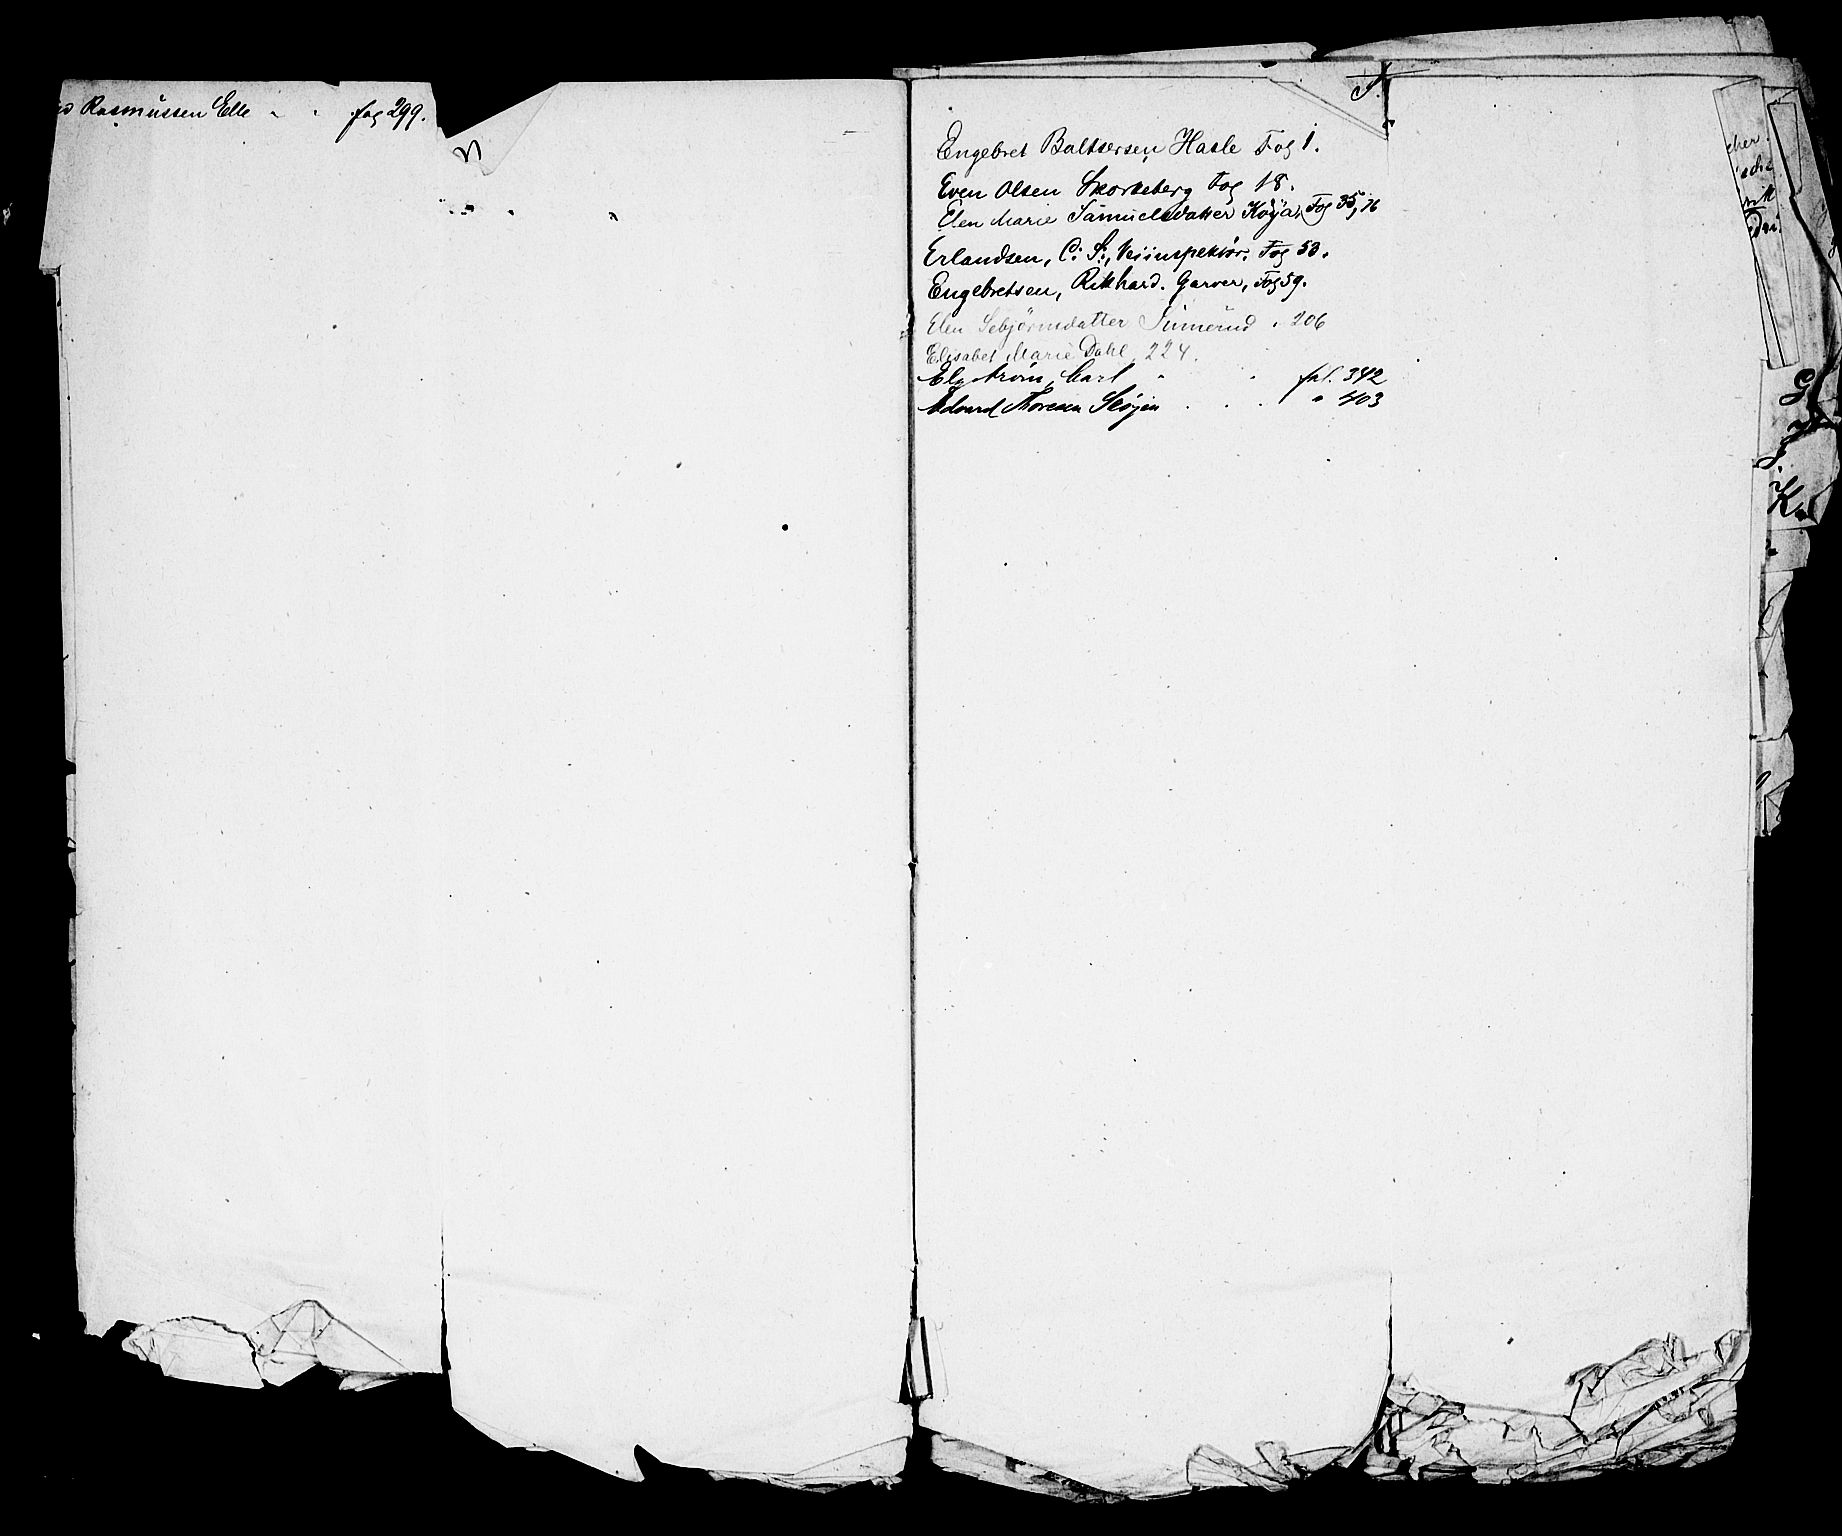 Rasmussen Elle fog 299.
Engebret Baltsersen Hasle Fog 1.
Even Olsen Skorteberg Fog 18.
Elen Marie Samuelsdatter Køya, Fog 35, 76
Erlandsen, C. S., Veiinspektør. Fog 50.
Engebretsen, Rikhard. Garver, Fog 59.
Elen Sebjørnsdatter 206
Elisabet Marie Dahl, 224.
Elgstrøm, Carl fol. 342
Edvard Thoresen Skøjen " 403
G
I.
K.